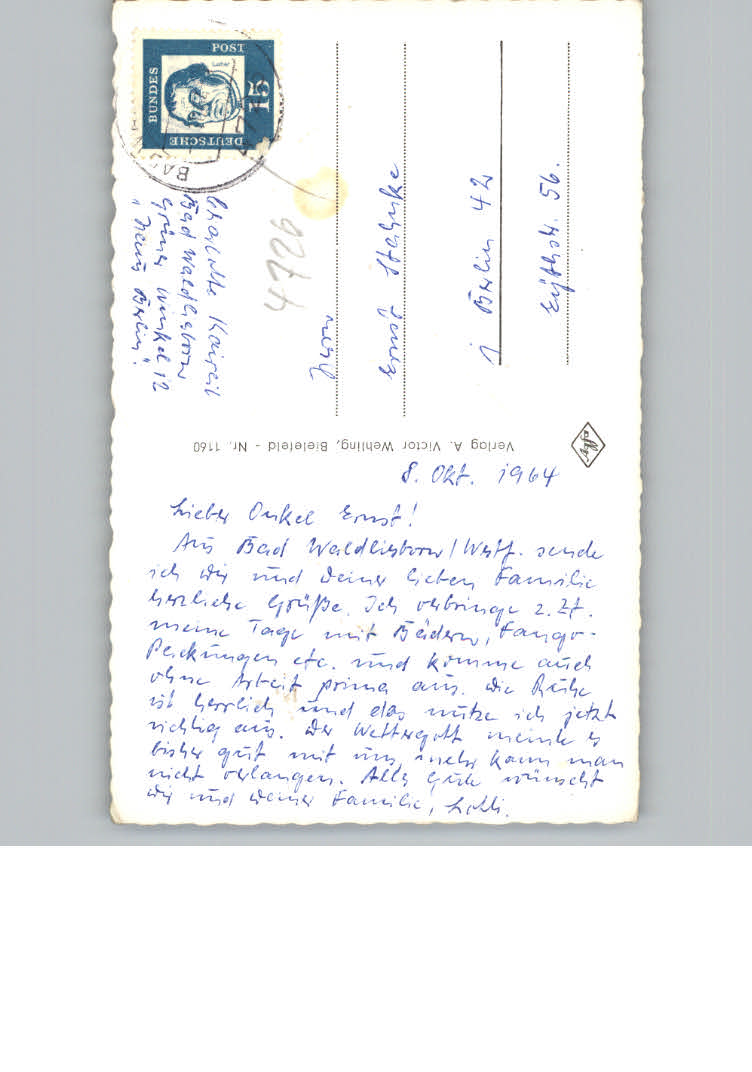 DEUTSCHE
BUNDES
POST
15
Luther
BAD WA
Charlotte Kaireit
Bad Waldliesborn
Grüner Winkel 12
"Haus Berlin".
9274
Herrn
Ernst Stahnke
1 Berlin 42
Eythstr. 56.
Verlag A. Victor Wehling, Bielefeld - Nr. 1160
8. Okt. 1964
Lieber Onkel Ernst!
Aus Bad Waldliesborn/Westf. sende
ich Dir und Deiner lieben Familie
herzliche Grüße. Ich verbringe z. Zt.
meine Tage mit Bädern, Fango-
Packungen etc. und komme auch
ohne Arbeit prima aus. Die Ruhe
ist herrlich und das nutze ich jetzt
richtig aus. Der Wettergott meinte es
bisher gut mit uns, mehr kann man
nicht verlangen. Alles Gute wünscht
Dir und Deiner Familie, Lotti.